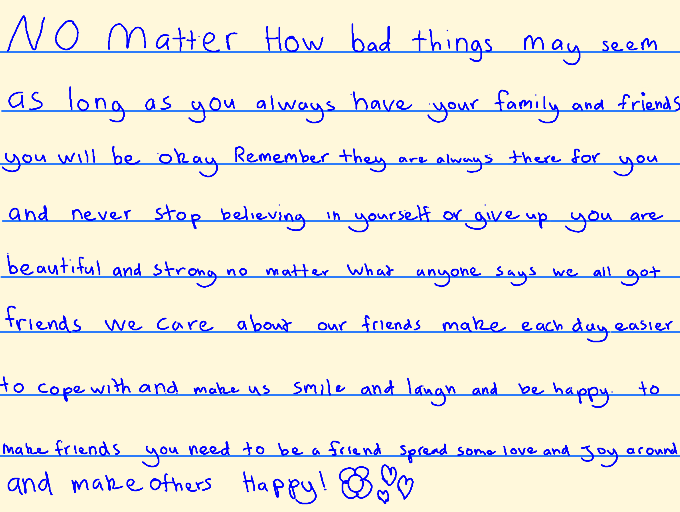 NO Matter How bad things may seem
as long as you always have your family and friends
you will be okay Remember they are always there for you
and never stop believing in yourself or give up you are
beautiful and strong no matter what anyone says we all got
friends we care about our friends make each day easier
to cope with and make us smile and laugh and be happy to
make friends you need to be a friend spread some love and Joy around
and make others Happy!